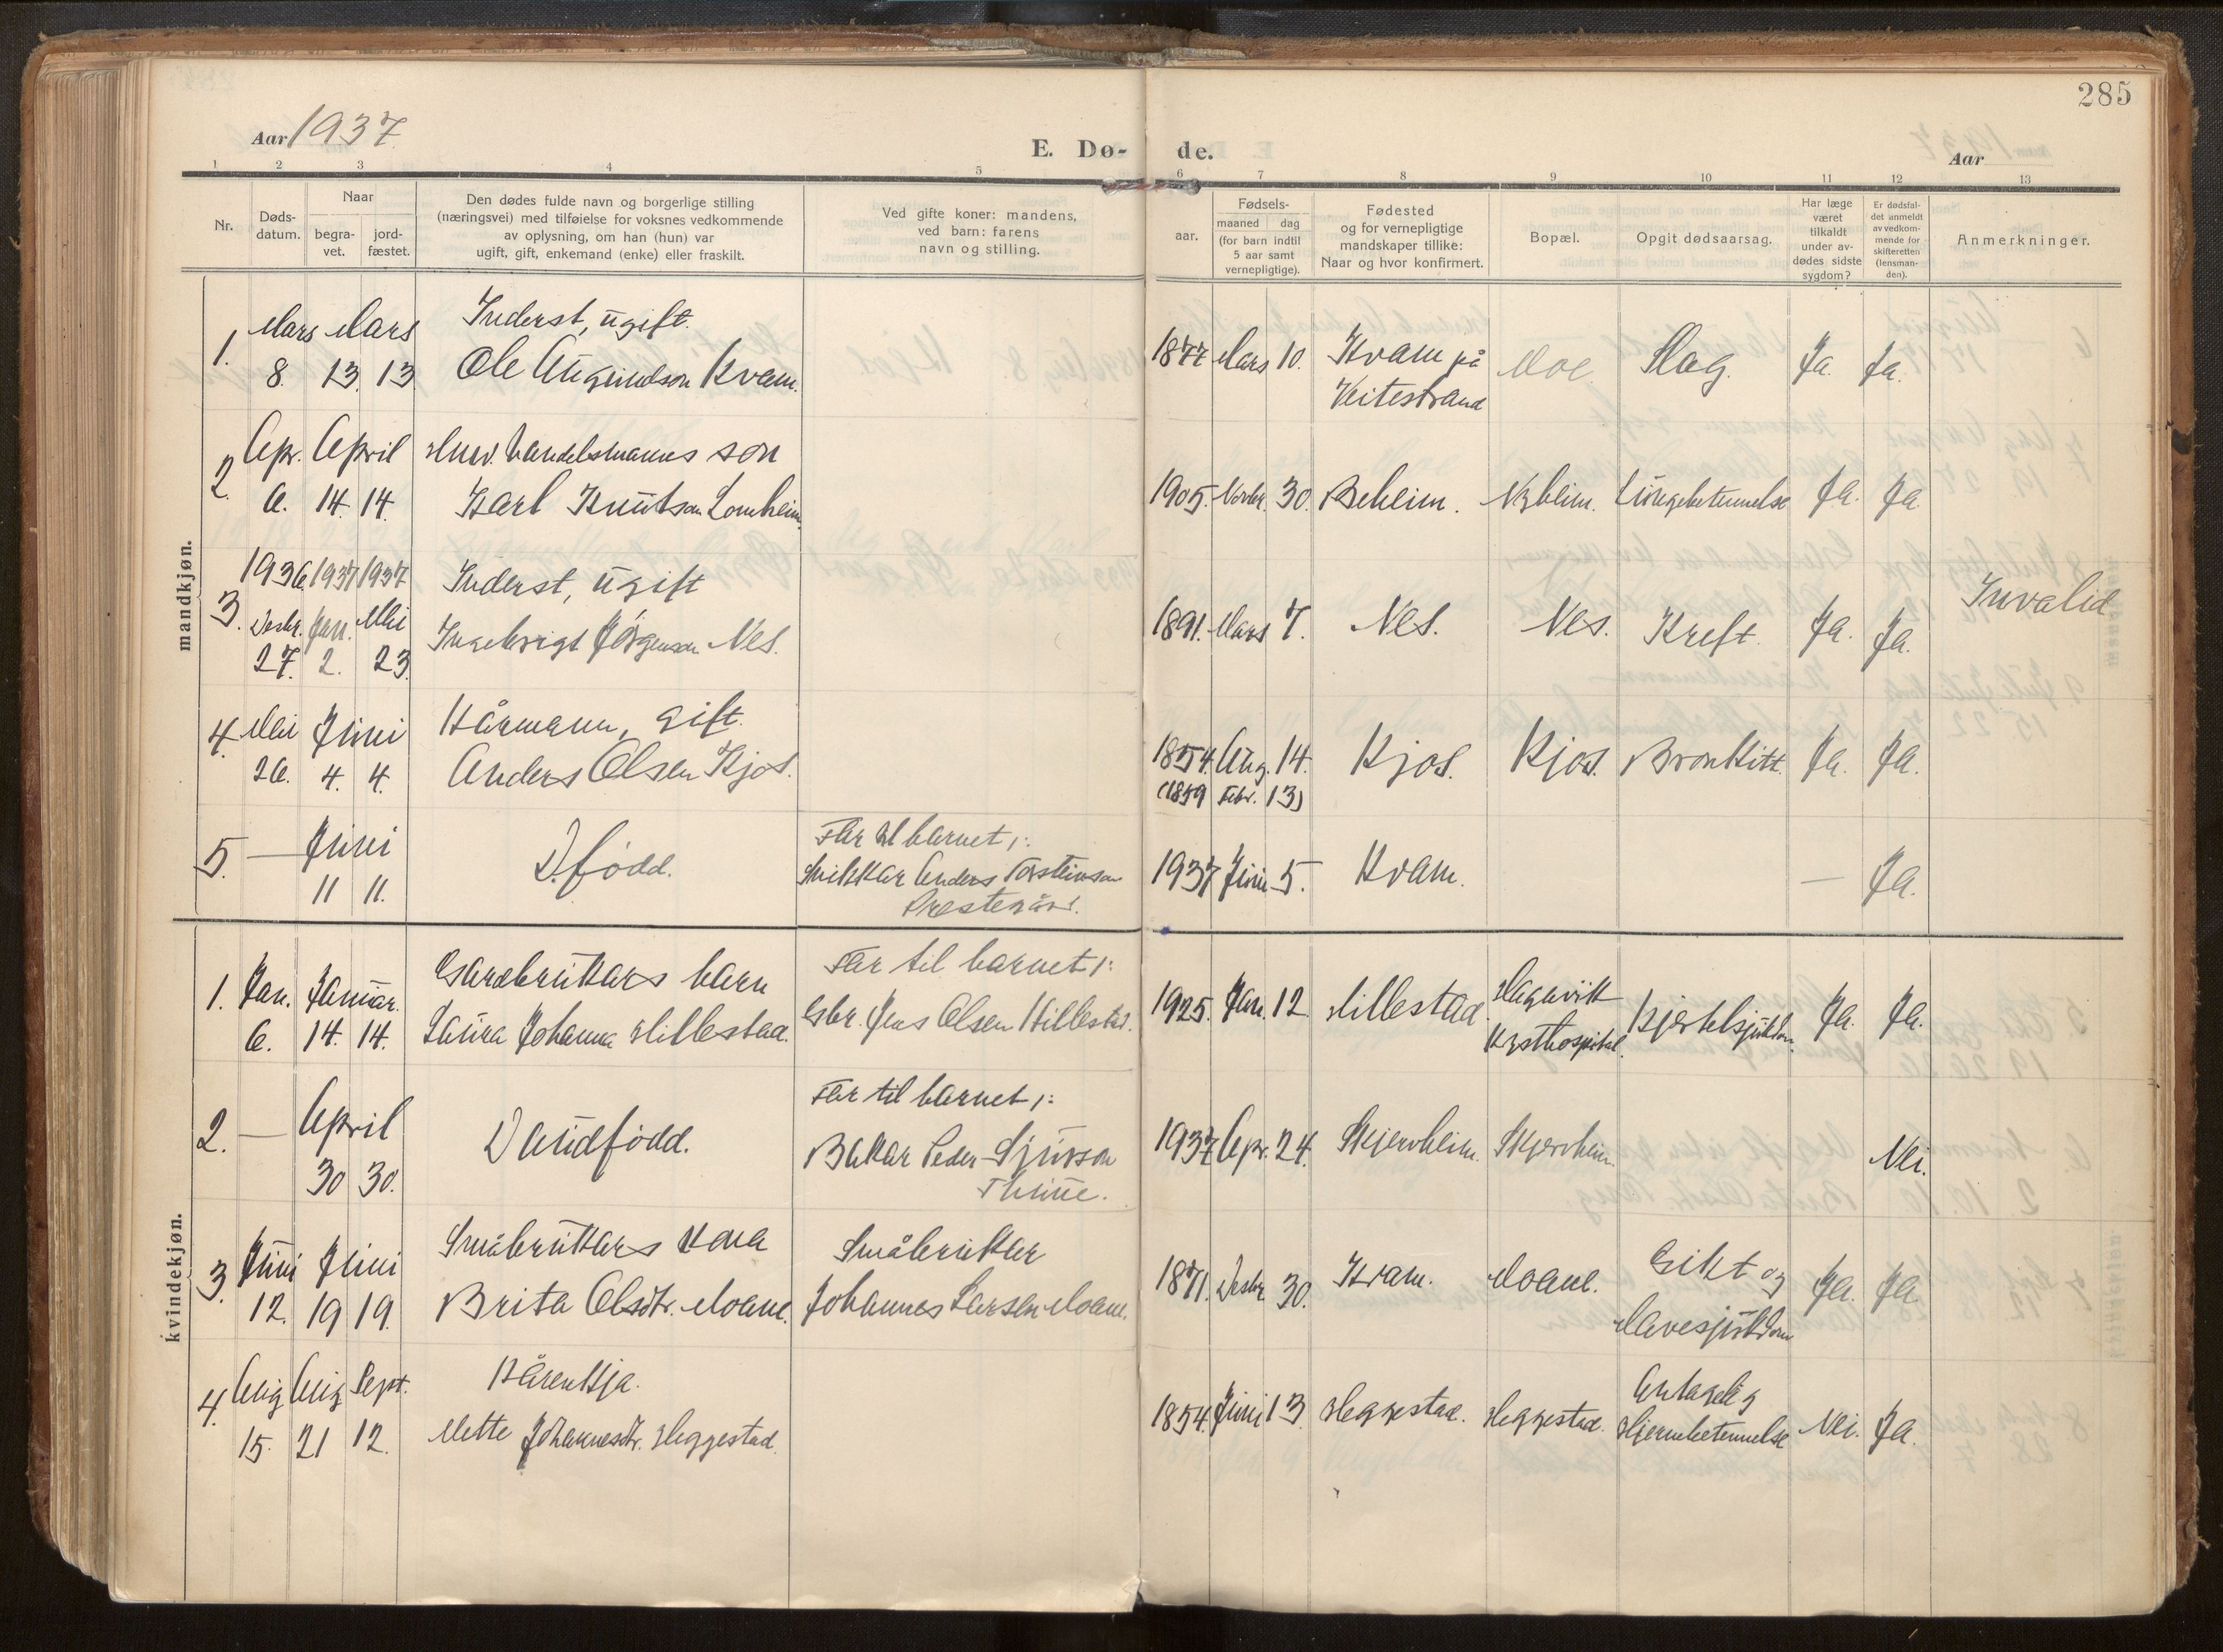 285
Aar 1937.
E. Dø-
de.
Aar
1 2 3 4 5 6 7 8 9 10 11 12 13
Nr.
Døds-
datum.
Naar
begra-
vet.
jord-
fæstet.
Den dødes fulde navn og borgerlige stilling
(næringsvei) med tilføielse for voksnes vedkommende
av oplysning, om han (hun) var
ugift, gift, enkemand (enke) eller fraskilt.
Ved gifte koner: mandens,
ved barn: farens
navn og stilling.
Fødsels-
aar.
maaned dag
(for barn indtil
5 aar samt
vernepligtige).
Fødested
og for vernepligtige
mandskaper tillike:
Naar og hvor konfirmert.
Bopæl.
Opgit dødsaarsag.
Har læge
været
tilkaldt
under av-
dødes sidste
sygdom?
Er dødsfal-
det anmeldt
av vedkom-
mende for
skifteretten
(lensman-
den).
Anmerkninger.
mandkjøn.
1. Mars Mars Inderst, ugift.
8. 13. 13 Ole Kvam.
1877 Mars 10. Kvam på Moe. Slag. Ja. Ja.
Veitestrand
2. Apr. April Handelsmanns son
6. 14. 14. Karl Knutson Lomheim.
1905. Novbr. 30. Beheim. Nyheim. Lungebetennelse Ja. Ja.
1936 1937 1937 Inderst, ugift
3. Desbr. Jan. Mai Ingebrigt Jørgenson Nes.
27. 2. 23.
1891. Mars 7. Nes. Nes. Kreft. Ja. Ja. Invalid
4. Mai Juni Kårmann, gift.
26. 4. 4. Anders Olsen Kjos.
1854. Aug. 14. Kjos. Kjos. Bronkitt. Ja. Ja.
(1859 Febr. 13)
5. — Juni D.fødd. Far til barnet:
11 11. Snikkar Anders Torsteinson
1937 Juni 5. Kvam. — Ja.
kvindekjøn.
1. Jan. Januar. Gardbrukars barn Far til barnet:
6. 14. 14. Laura Johanna Hillestad. Gbr. Jens Olsen Hillestad.
1925. Jan. 12 Hillestad. Hagavik Kjertelsjukdom. Ja. Ja.
Kysthospital.
2. — April Daudfødd. Far til barnet:
30 30. Bakar Peder Sjurson
Thune.
1937 Apr. 24. Skjervheim. Skjervheim. Nei.
3. Juni Juni Småbrukars kona Småbrukar
12. 19 19. Brita Olsdtr. Moane. Johannes Larsen Moane.
1871. Desbr. 30. Kvam. Moane. Gikt og Ja. Ja.
Mavesjukdom
4. Aug Aug Sept. Kårenkja.
15. 21 12. Mette Johannesdtr. Heggestad.
1854. Juni 13 Heggestad. Heggestad. Antagelig
Hjernebetennelse Nei. Ja.